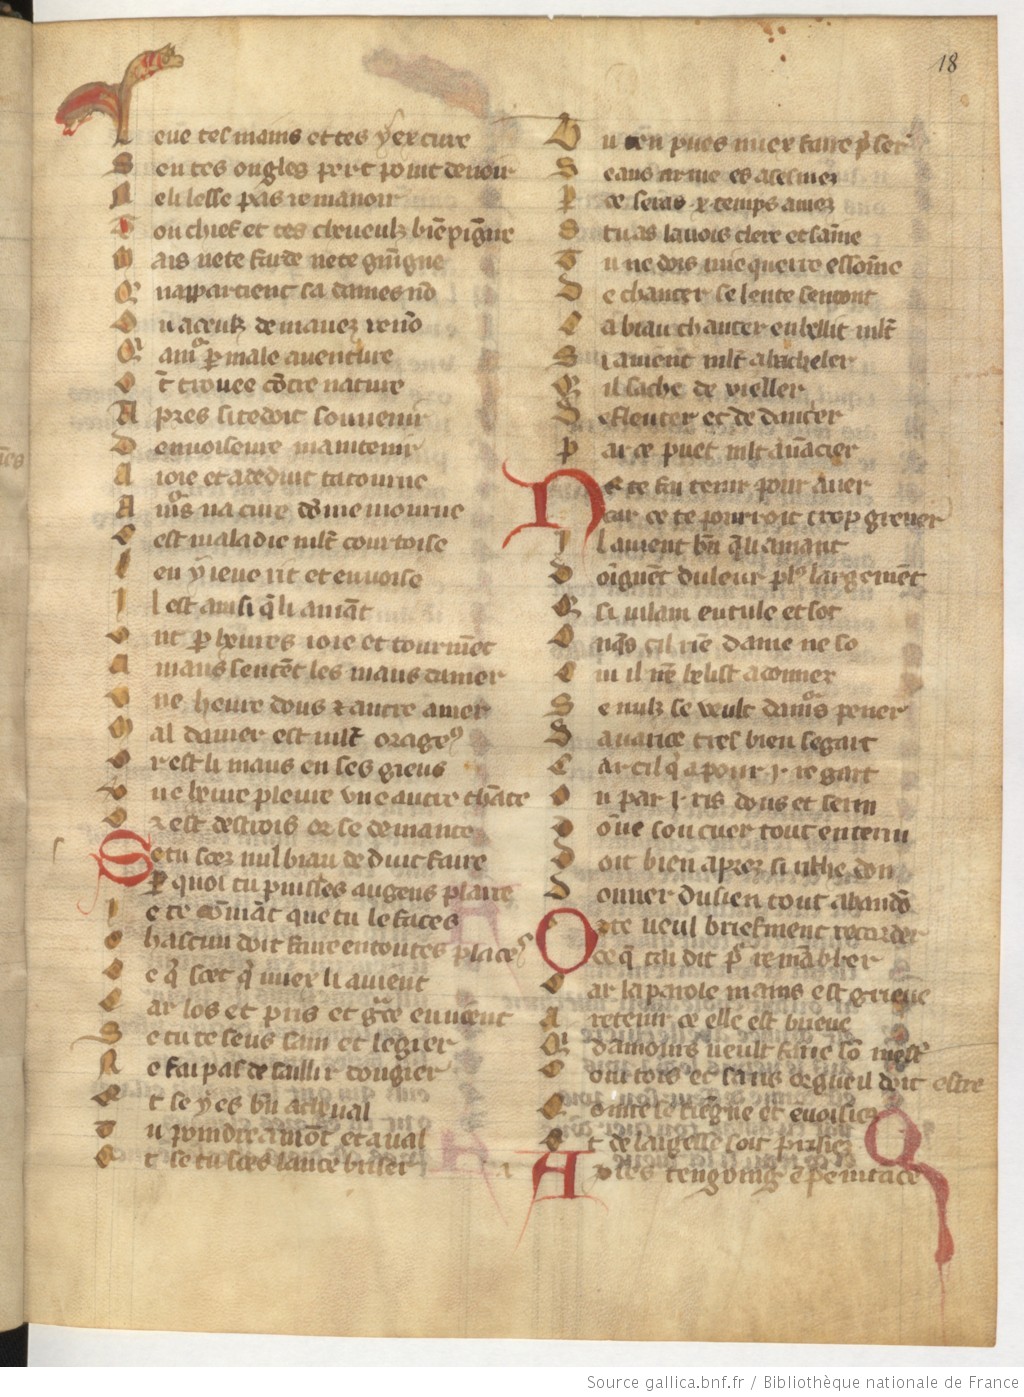 18
Leue tes mains et tes denz cure
S en tes ongles pert point de noir
N eli lesse pas remanoir
T on chief et tes cheueulz biē pigne
M ais ne te farde ne te guigne
Q uapartient sa dames nō
O u a ceulz de mauez renō
Q amͬ ꝑ male auenture
O t̄ trouee cōtre nature
A pres si te doit souuenir
D enuoiseure maintenir
A ioie et a deduit ta tourne
A mͬs na cure dōme mourne
C est maladie mlt̄ courtoise
l en y ieue rit et enuoise
I l est ainsi q̄ li amāt
O nt ꝑ heures ioie et tourmēt
A maus sentēt les maus damer
V ne heure dous ⁊ autre amer
M al damer est mlt̄ orageˀ
O r est li maus en ses gieus
V ne heure pleure vne autre chāte
O r est destrois or se demante
Se tu scez nul biau deduit faire
Ꝑ quoi tu puisses aus gens plaire
I e te cōmāt que tu le faces
C hascun doit faire en toutes places
C e q̄ scet q̄ miex li auient
C ar los et pris et gͣce en uiēt
S e tu te sens sain et legier
N e fai pas de saillir dongier
E t se y es bn̄ a cheual
T u poindre amōt et aual
E t se tu sces lance briser
T u ten pues miex faire p̄ser
S e aus armes es acesmez
P ce seras ꝑ temps amez
S tu as la uois clere et saine
T u ne dois mie querre essoine
D e chanter se len te semont
C a biau chanter enbellit mlt̄
S i auient mlt̄ a bacheler
Q il sache de vieller
D e fleuter et de dancer
P ar ce puet mlt auācier
Ne te fai tenir pour auer
Car ce te pourroit trop greuer
I l auient bn̄ q̄ li amant
D oignēt du leur plˀ largemēt
Q si uilain entule et sot
O nq̄s cil riē damer ne so
C ui il nē belist a donner
S e nulz se veult damͬs pener
D auarice tres bien se gart
C ar cil q̄ a pour .j. regart
O u par .j. ris dous et serin
D one son cuer tout enterin
D oit bien apres si riche don
D onner du sien tout a bandō
Or te ueul briefment recorder
Ce q̄ tai dit pͬ remābrer
C ar la parole mains est grieue
A retenir ce elle est brieue
Q damours ueult faire sō mestͬ
C ourtois et sans orgueil doit estre
C ointe se tiēgne et enuoisiez
E t de largesse soit prisiez
Apres tengoing ē penitāce